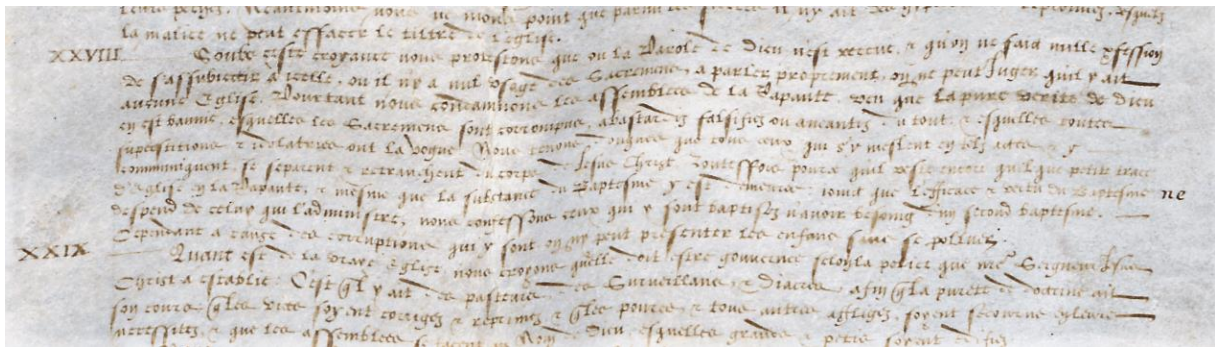 la malice ne peut effacer le tiltre de l'eglise.
XXVIII Soubz ceste croyance nous protestons que ou la Parole de Dieu n'est receue, & qu'on ne faid nulle pfession
de s'assubiectir a icelle, ou il n'y a nul usage des Sacremens, a parler proprement, on ne peut Juger qu'il y ait
aucune Eglise. Pourtant nous condamnons les assemblees de la Papaulte, veu que la pure verite de dieu
en est bannie, esquelles les Sacremens sont corrompus, abastardis falsifiez ou aneantis du tout, & esquelles toutes
superstitions & idolatries ont la vogue. Nous tenons donques que tous ceux qui s'y meslent en telz actes & y
communiquent, se separent & retranchent du corps de Jesus Christ. Toutesfois pource quil reste encore quelque petit trace
d'Eglise en la Papaulte, & mesme que la substance du Baptesme y est demeuree, ioinct que l'efficace & vertu du Baptesme ne
despend de celuy qui l'administre, nous confessons ceux qui y sont baptisez n'avoir besoing d'un second baptesme.
Cependant a cause des corruptions qui y sont on n'y peut presenter les enfans sans se polluer.
XXIX Quant est de la vraye Eglise, nous croyons qu'elle doit estre gouvernee selon la police que nre Seigneur Jesus
Christ a establie. C'est ql y ait des pasteurs, des Surveillans, & diacres, afin q la purete de doctrine ait
son cours, q les vices soyent corrigez & reprimez & q les povres & tous autres affligez soyent secourus en leurs
necessitez, & que les assemblees se facent au Nom de dieu, esquelles grands & petis soyent edifiez.